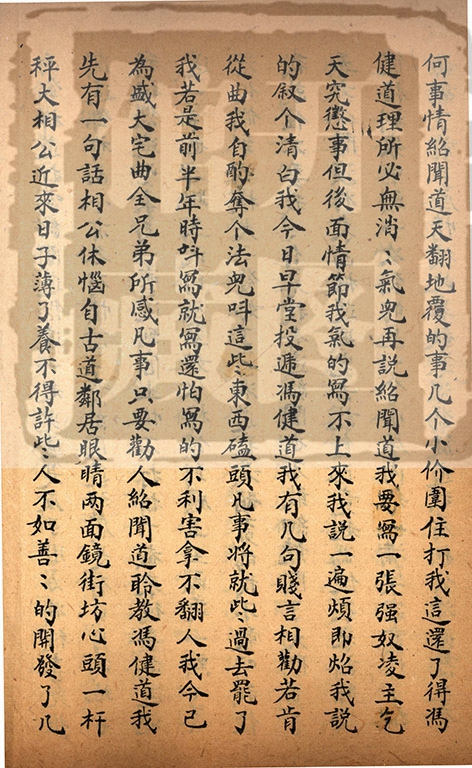 何事情紹聞道天翻地覆的事几个小价圍住打我這還了得馮
健道理所必無消〻氣兒再説紹聞道我要寫一張强奴凌主乞
天究懲事但後面情節我氣的寫不上來我說一遍煩即焰我說
的叙个清白我今日早堂投遞馮健道我有几句賤言相勸若肯
從曲我自酌奪个法兒呌這些東西磕頭凡事將就些過去罷了
我若是前半年時呌寫就寫還怕寫的不利害拿不翻人我今已
為盛大宅曲全兄弟所感凡事只要勸人紹聞道聆教馮健道我
先有一句話相公休惱自古道鄰居眼睛两面鏡街坊心頭一杆
秤大相公近來日子薄了養不得許些人不如善〻的開發了几